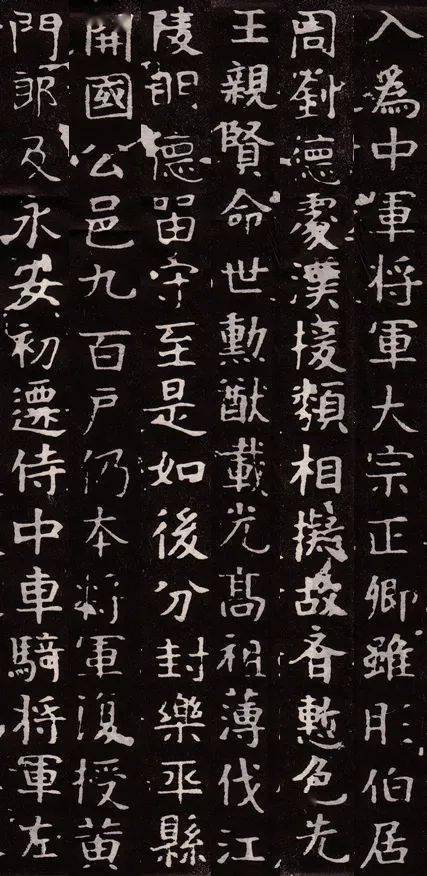 入爲中軍将軍大宗正卿雖彤伯居
周劉德處漢接類相擬故慙色先
王親賢命世勳猷載光髙祖薄伐江
陵明德留守至是如後分封樂平縣
開國公邑九百戶仍本將軍復授黃
門郎及永安初遷侍中車騎将軍左